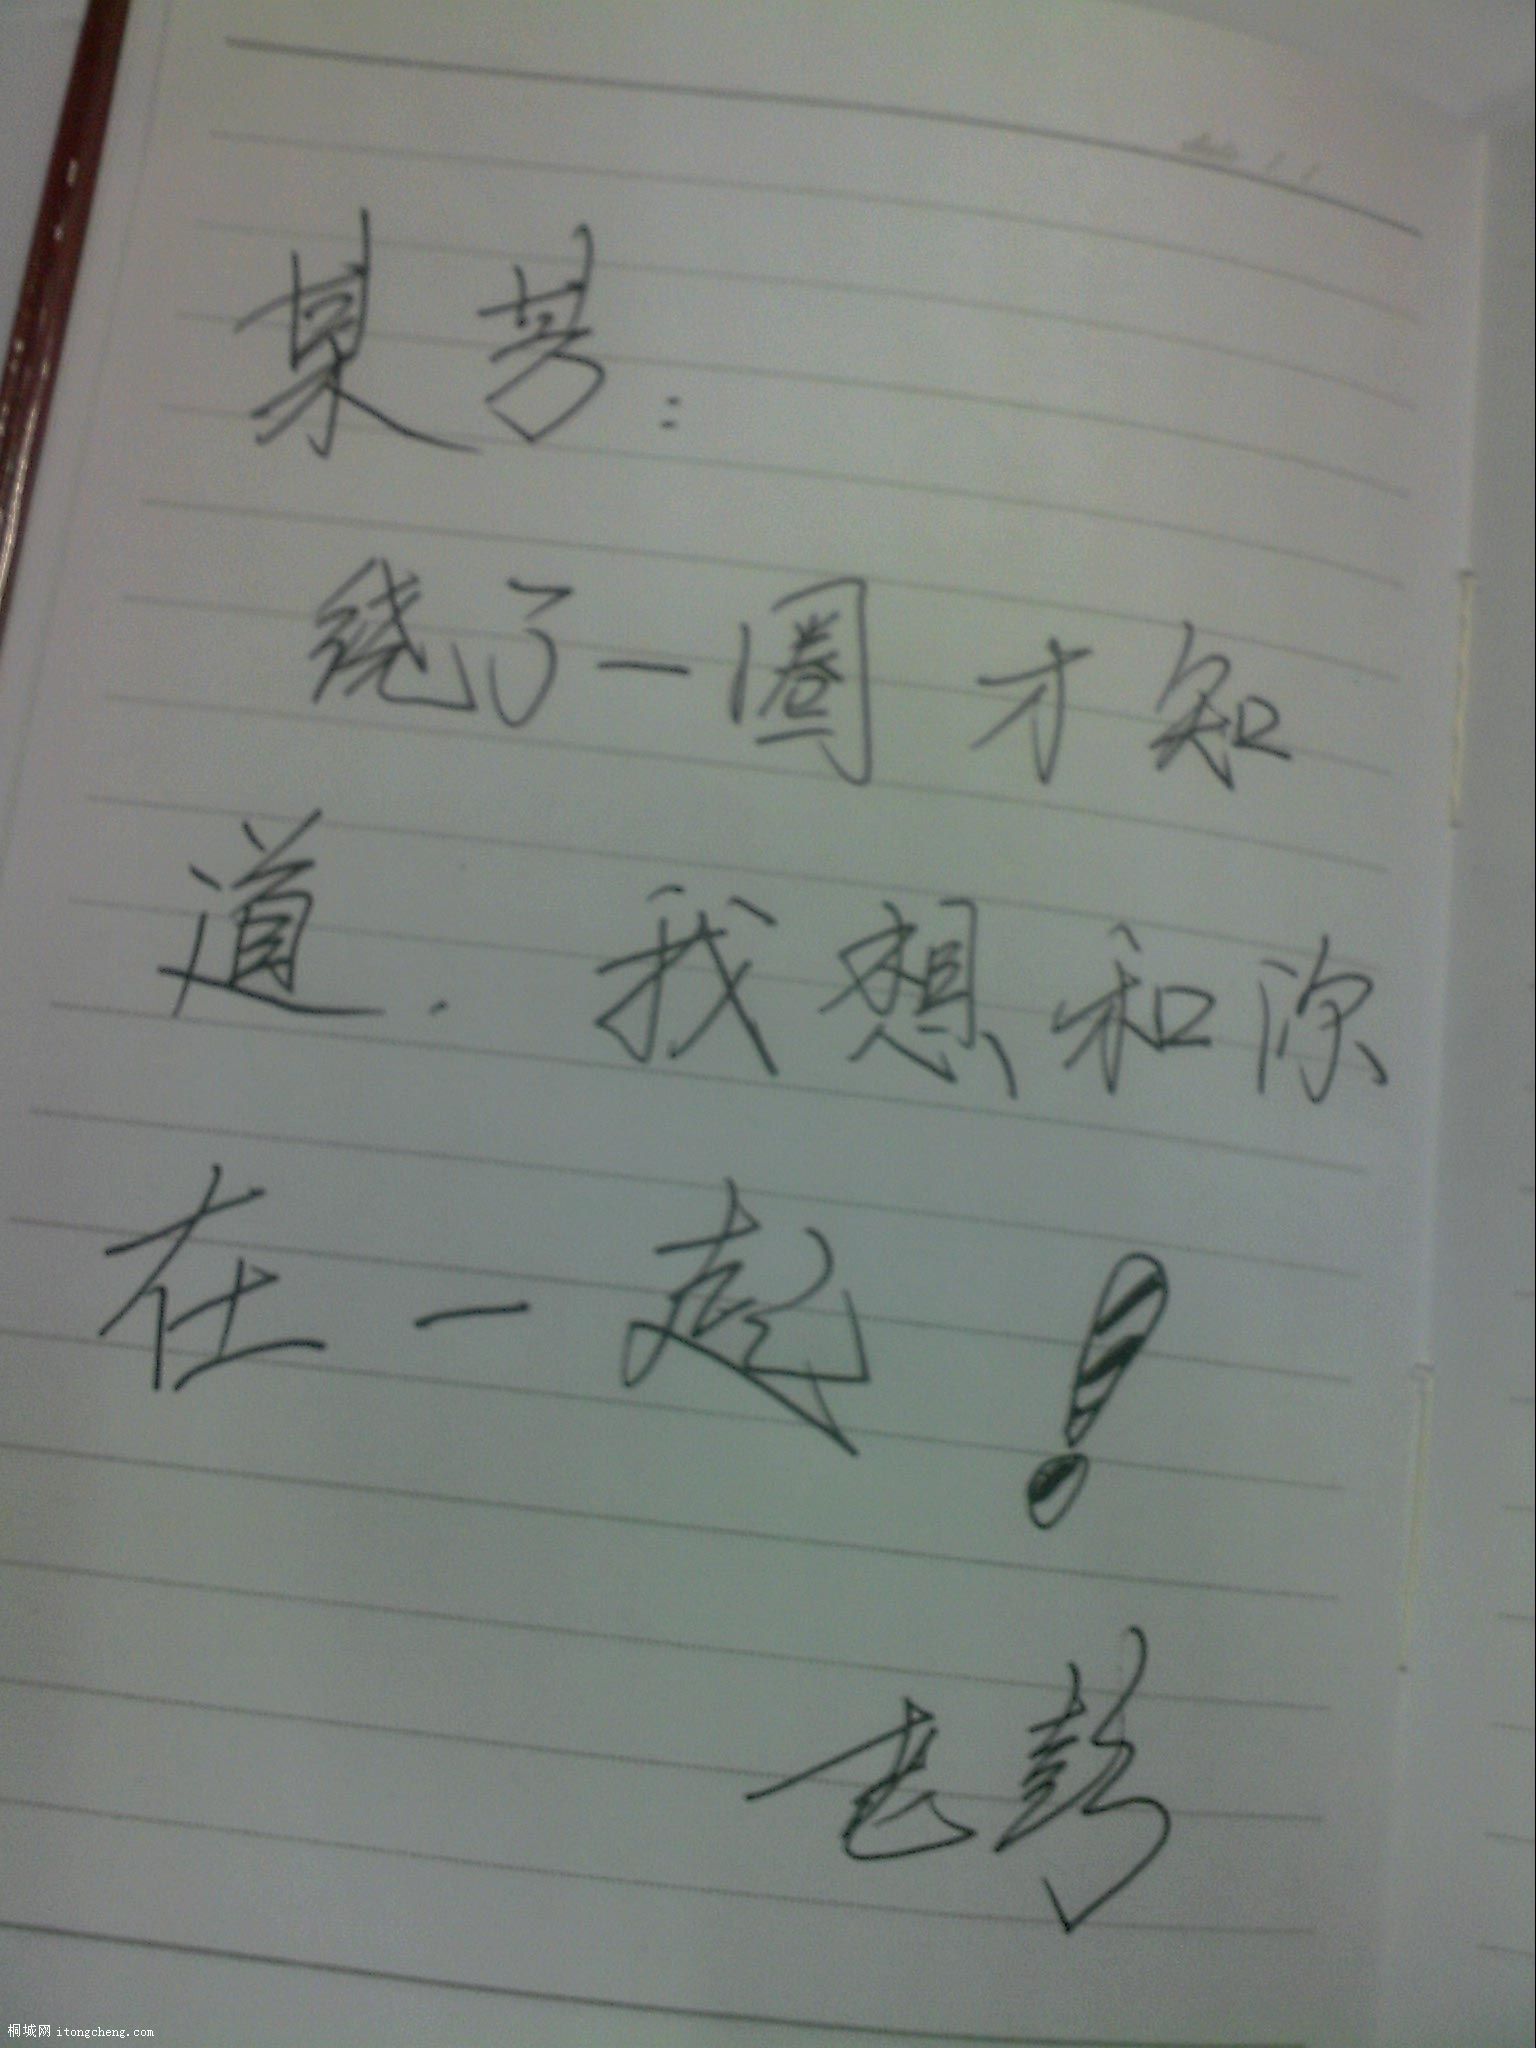 某芳:
绕了一圈才知
道. 我想和你
在一起!
老彭
桐城网 itongcheng.com